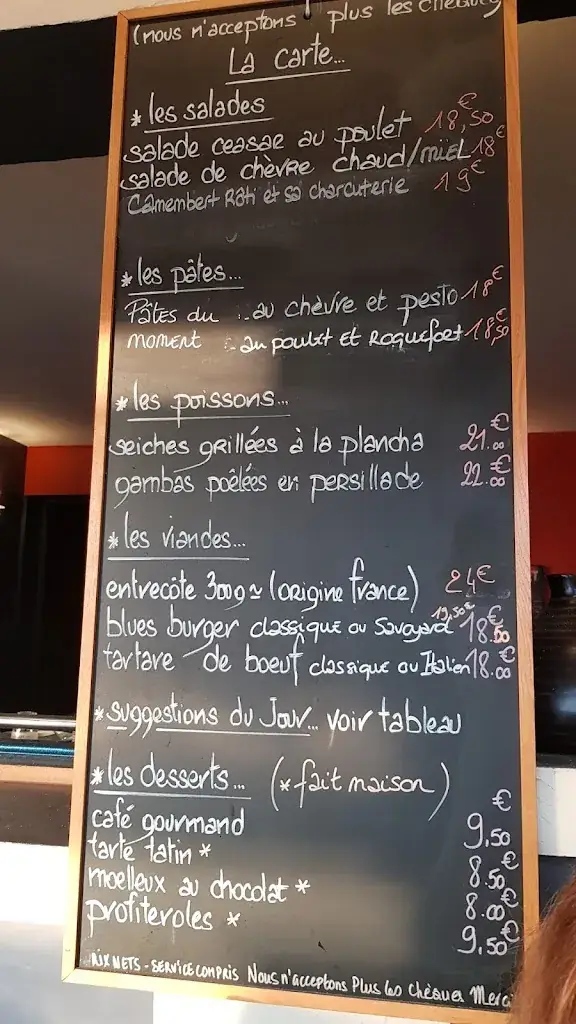 (nous n'acceptons plus les chèques
La carte...
*les salades
salade ceasar au poulet 18,50€
salade de chèvre chaud/miel 18€
Camembert Rôti et sa charcuterie 19€
*les pâtes...
Pâtes du :-au chèvre et pesto 18€
moment :-au poulet et Roquefort 18,50€
*les poissons...
seiches grillées à la plancha 21.00€
gambas poêlées en persillade 22.00€
*les viandes...
entrecôte 300g~ (origine france) 24€
blues burger classique ou Savoyard 19,50€ 18.50€
tartare de boeuf classique ou Italien 18.00€
*suggestions du Jour... voir tableau
*les desserts... (*fait maison)
café gourmand 9,50€
tarte tatin* 8.50€
moelleux au chocolat* 8.00€
profiteroles* 9,50€
PRIX NETS - SERVICE COMPRIS Nous n'acceptons Plus les Chèques Merci